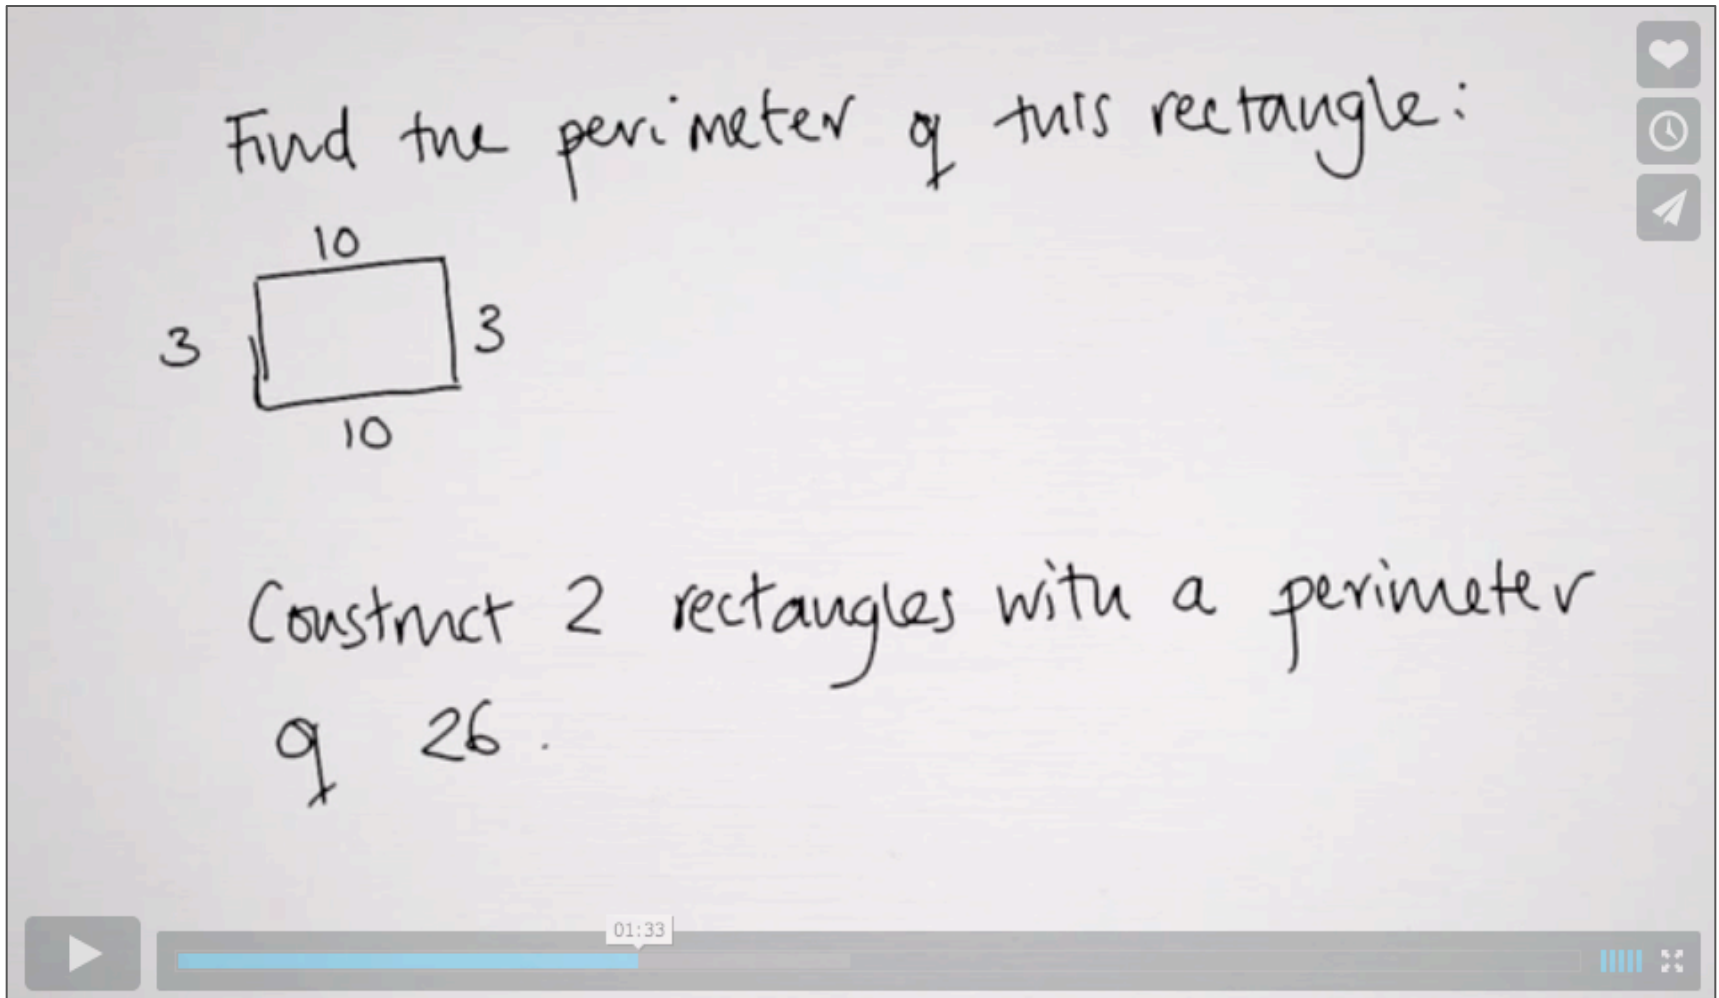 Find the perimeter of this rectangle:
10
3
3
10
Construct 2 rectangles with a perimeter
of 26.
01:33